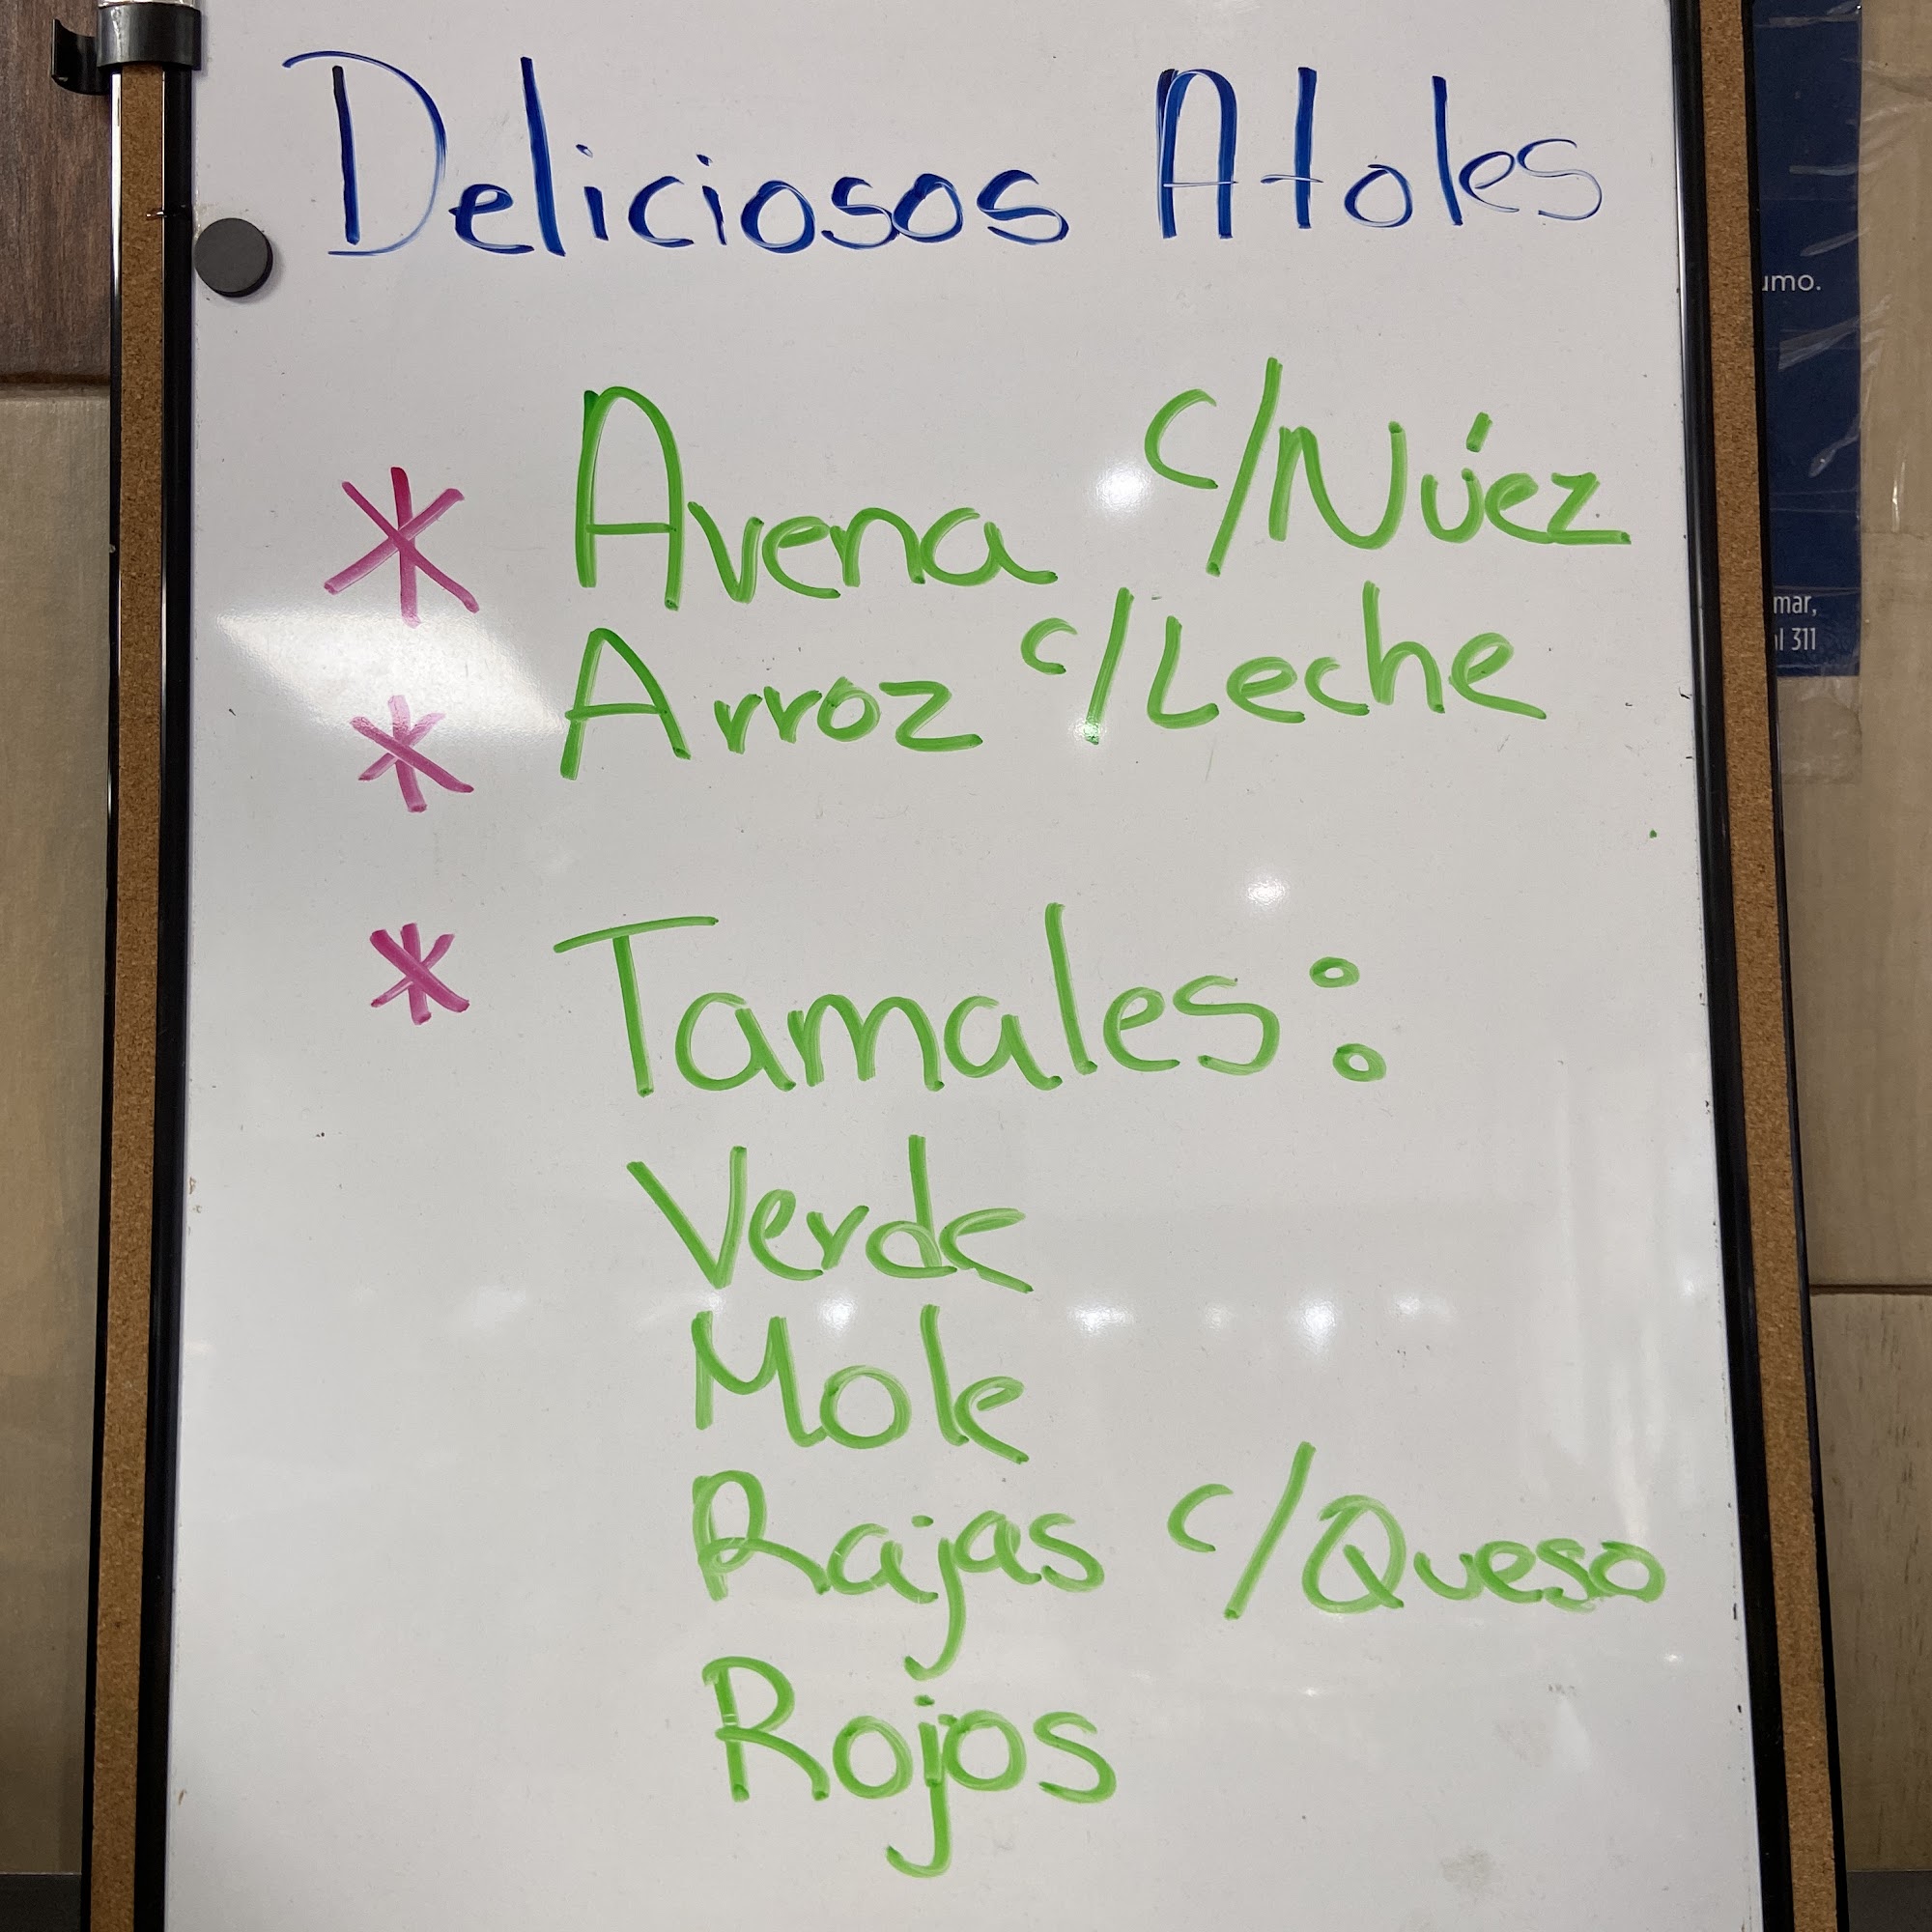 Deliciosos Atoles
* Avena c/Núez
* Arroz c/Leche
* Tamales:
Verde
Mole
Rajas c/Queso
Rojos
umo.
mar,
al 311